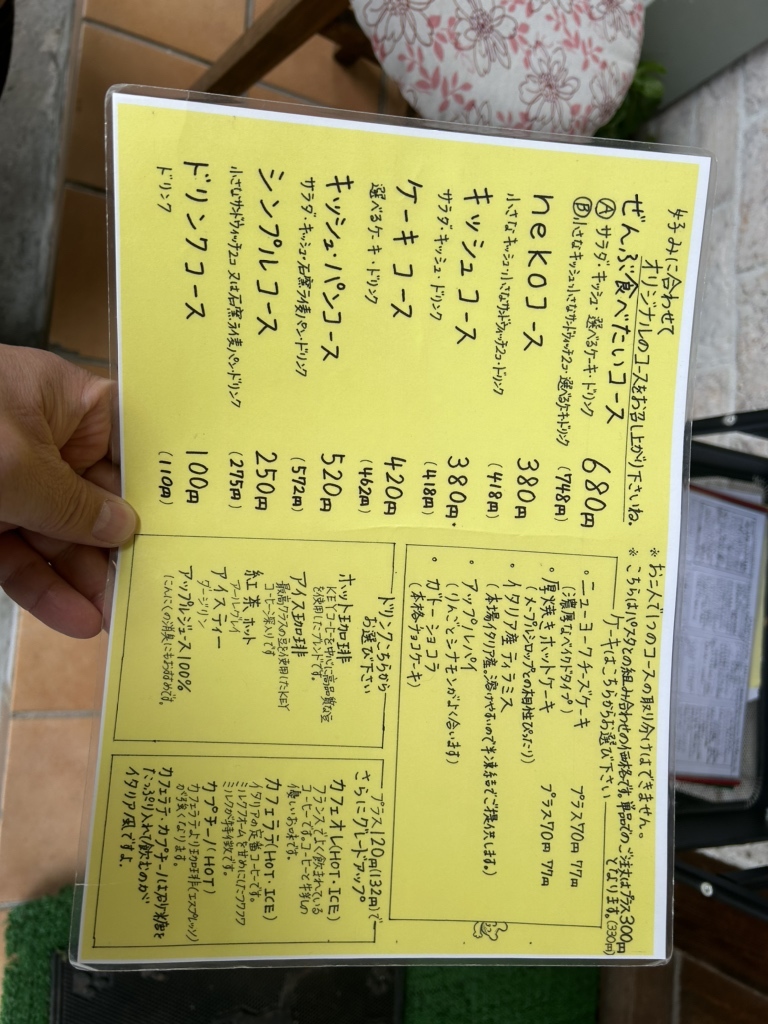 好みに合わせて
オリジナルのコースをお召し上がり下さいね。
ぜんぶ食べたいコース 680円
Ⓐ サラダ・キッシュ・選べるケーキ・ドリンク (748円)
Ⓑ 小さなキッシュ・小さなサンドウィッチ2コ・選べるケーキ・ドリンク
nekoコース 380円
小さなキッシュ・小さなサンドウィッチ2コ・ドリンク (418円)
キッシュコース 380円
サラダ・キッシュ・ドリンク (418円)
ケーキコース 420円
選べるケーキ・ドリンク (462円)
キッシュ・パンコース 520円
サラダ・キッシュ・石窯ライ麦パン・ドリンク (572円)
シンプルコース 250円
小さなサンドウィッチ2コ 又は石窯ライ麦パン・ドリンク (275円)
ドリンクコース 100円
ドリンク (110円)
※お二人で1つのコースの取り分けはできません。
※こちらはパスタとの組み合わせの価格です。単品でのご注文はプラス300円
となります。(330円)
ケーキはこちらからお選び下さい
・ニューヨークチーズケーキ プラス70円 77円
(濃厚なベイクドタイプ)
・厚焼きホットケーキ プラス70円 77円
(メープルシロップとの相性ぴったり)
・イタリア産ティラミス
(本場イタリア産。溶けやすいので半凍結でご提供致します。)
・アップルパイ
(りんごとシナモンがよく合います)
・ガトーショコラ
(本格チョコケーキ)
ドリンクこちらから
お選び下さい
ホット珈琲
KEYコーヒーを中心に高品質な豆
を使用したブレンドです。
アイス珈琲
最高クラスの豆を使用したKEY
コーヒー深入りです
紅茶ホット
アールグレイ
アイスティー
ダージリン
アップルジュース100%
(にんにくの消臭にもおすすめです。)
プラス120円(132円)で
さらにグレードアップ
カフェオレ(HOT・ICE)
フランスでよく飲まれている
コーヒーです。コーヒーと牛乳の
優しいお味です。
カフェラテ(HOT・ICE)
イタリアの定番コーヒーです。
ミルクフォームを甘めにしたフワフワ
ミルクが特徴です。
カプチーノ(HOT)
カフェラテより珈琲(エスプレッソ)
が強くなります。
カフェラテ・カプチーノはお砂糖を
たっぷり入れて飲むのが
イタリア風ですよ。